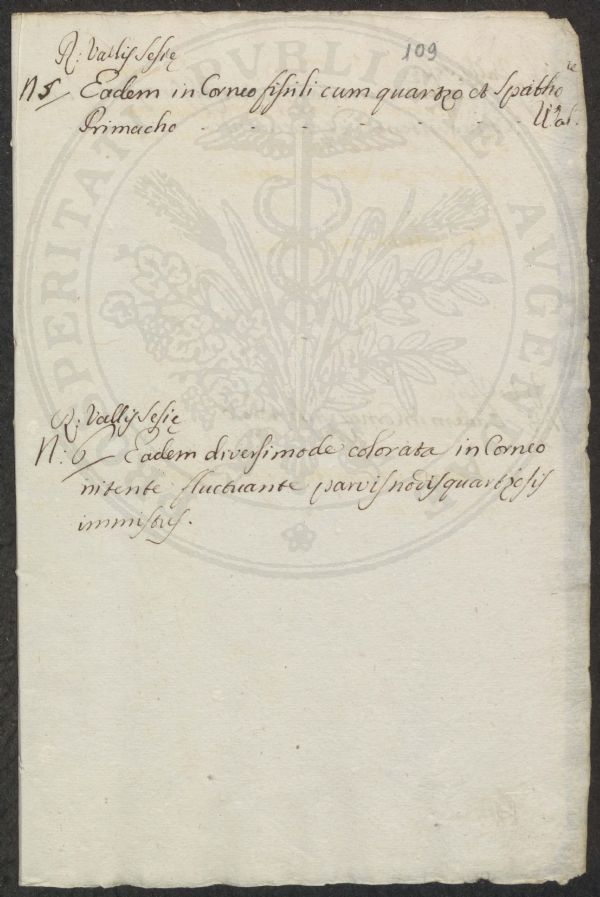 109
R: Vallis Sesię
N 5 Eadem in Corneo fissili cum quartzo et Spatho
Primacho - - - - - - - - Wal.
R: Vallis Sesię
N: 6 Eadem diversimode colorata in Corneo
nitente fluctuante parvis nodis quartzosis
immistis.